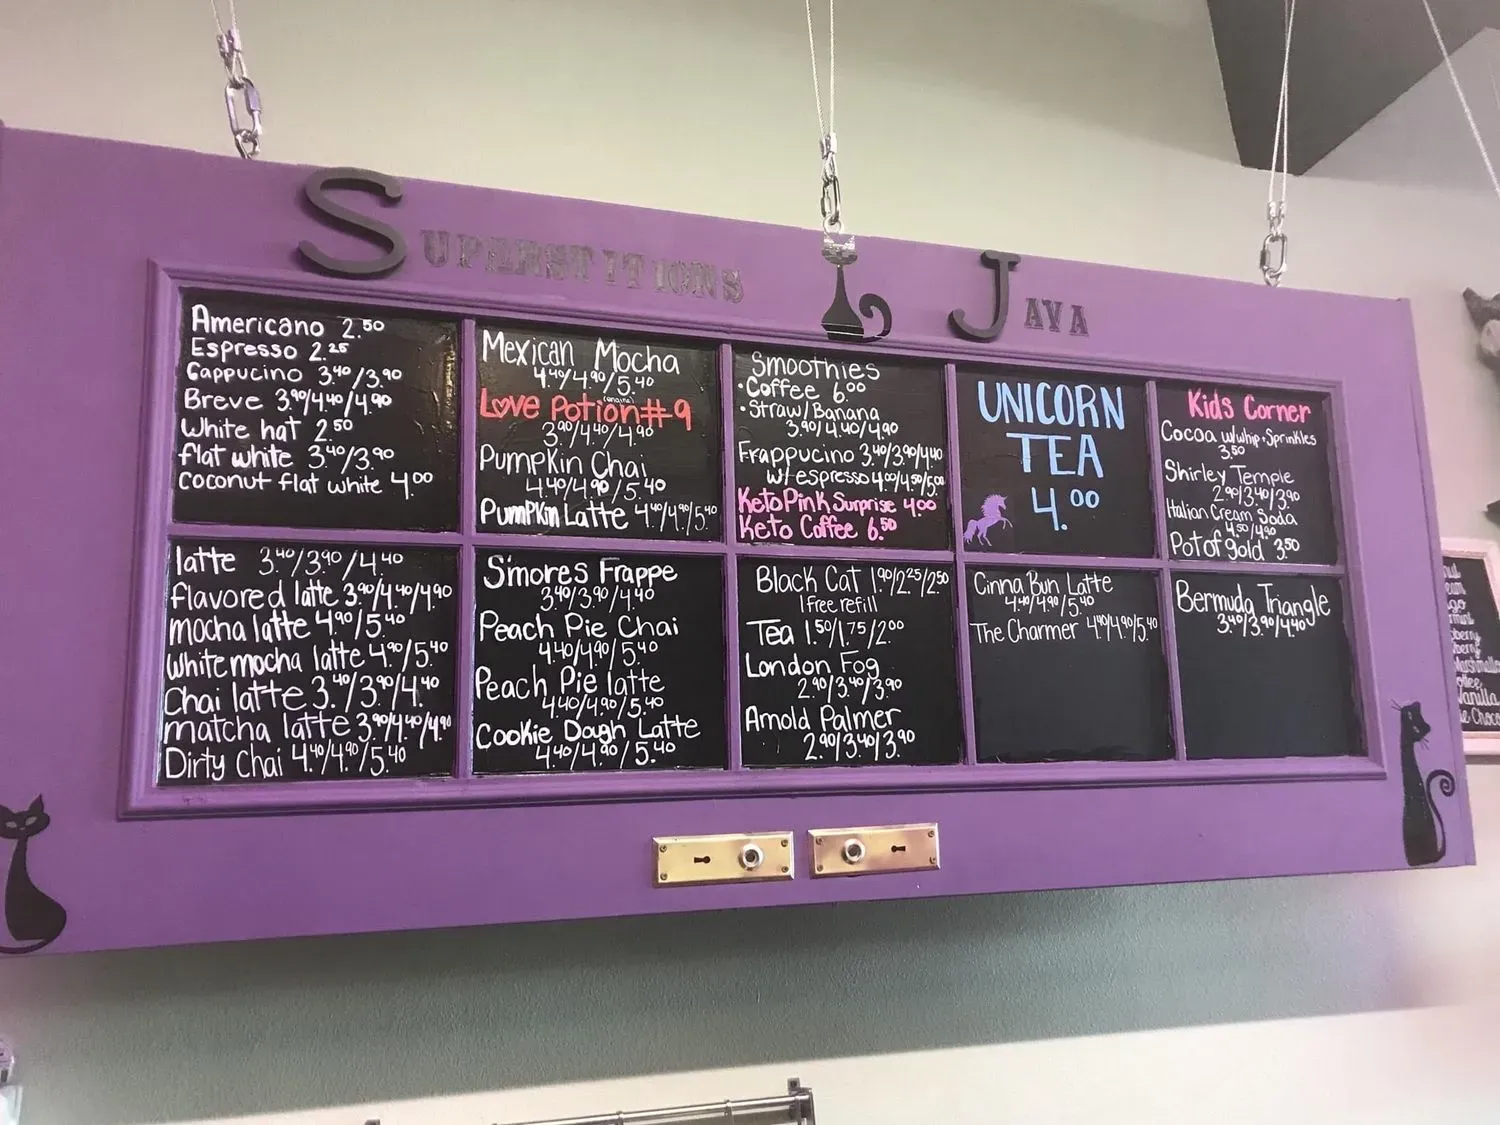 SUPERSTITIONS JAVA
Americano 2.50
Espresso 2.25
Cappucino 3.40/3.90
Breve 3.90/4.40/4.90
White hat 2.50
flat white 3.40/3.90
coconut flat white 4.00
Mexican Mocha
4.40/4.90/5.40
Love Potion #9
3.90/4.40/4.90
Pumpkin Chai
4.40/4.90/5.40
Pumpkin Latte 4.40/4.90/5.40
Smoothies
•Coffee 6.00
•Straw/Banana
3.90/4.40/4.90
Frappucino 3.40/3.90/4.40
w/espresso 4.00/4.50/5.00
Keto Pink Surprise 4.00
Keto Coffee 6.50
UNICORN
TEA
4.00
Kids Corner
Cocoa w/whip+Sprinkles
3.50
Shirley Temple
2.90/3.40/3.90
Italian Cream Soda
4.50/4.90
Pot of gold 3.50
latte 3.40/3.90/4.40
flavored latte 3.90/4.40/4.90
mocha latte 4.90/5.40
white mocha latte 4.90/5.40
Chai latte 3.40/3.90/4.40
matcha latte 3.90/4.40/4.90
Dirty Chai 4.40/4.90/5.40
S'mores Frappe
3.40/3.90/4.40
Peach Pie Chai
4.40/4.90/5.40
Peach Pie latte
4.40/4.90/5.40
Cookie Dough Latte
4.40/4.90/5.40
Black Cat 1.90/2.25/2.50
1 free refill
Tea 1.50/1.75/2.00
London Fog
2.90/3.40/3.90
Arnold Palmer
2.90/3.40/3.90
Cinna Bun Latte
4.40/4.90/5.40
The Charmer 4.40/4.90/5.40
Bermuda Triangle
3.40/3.90/4.40